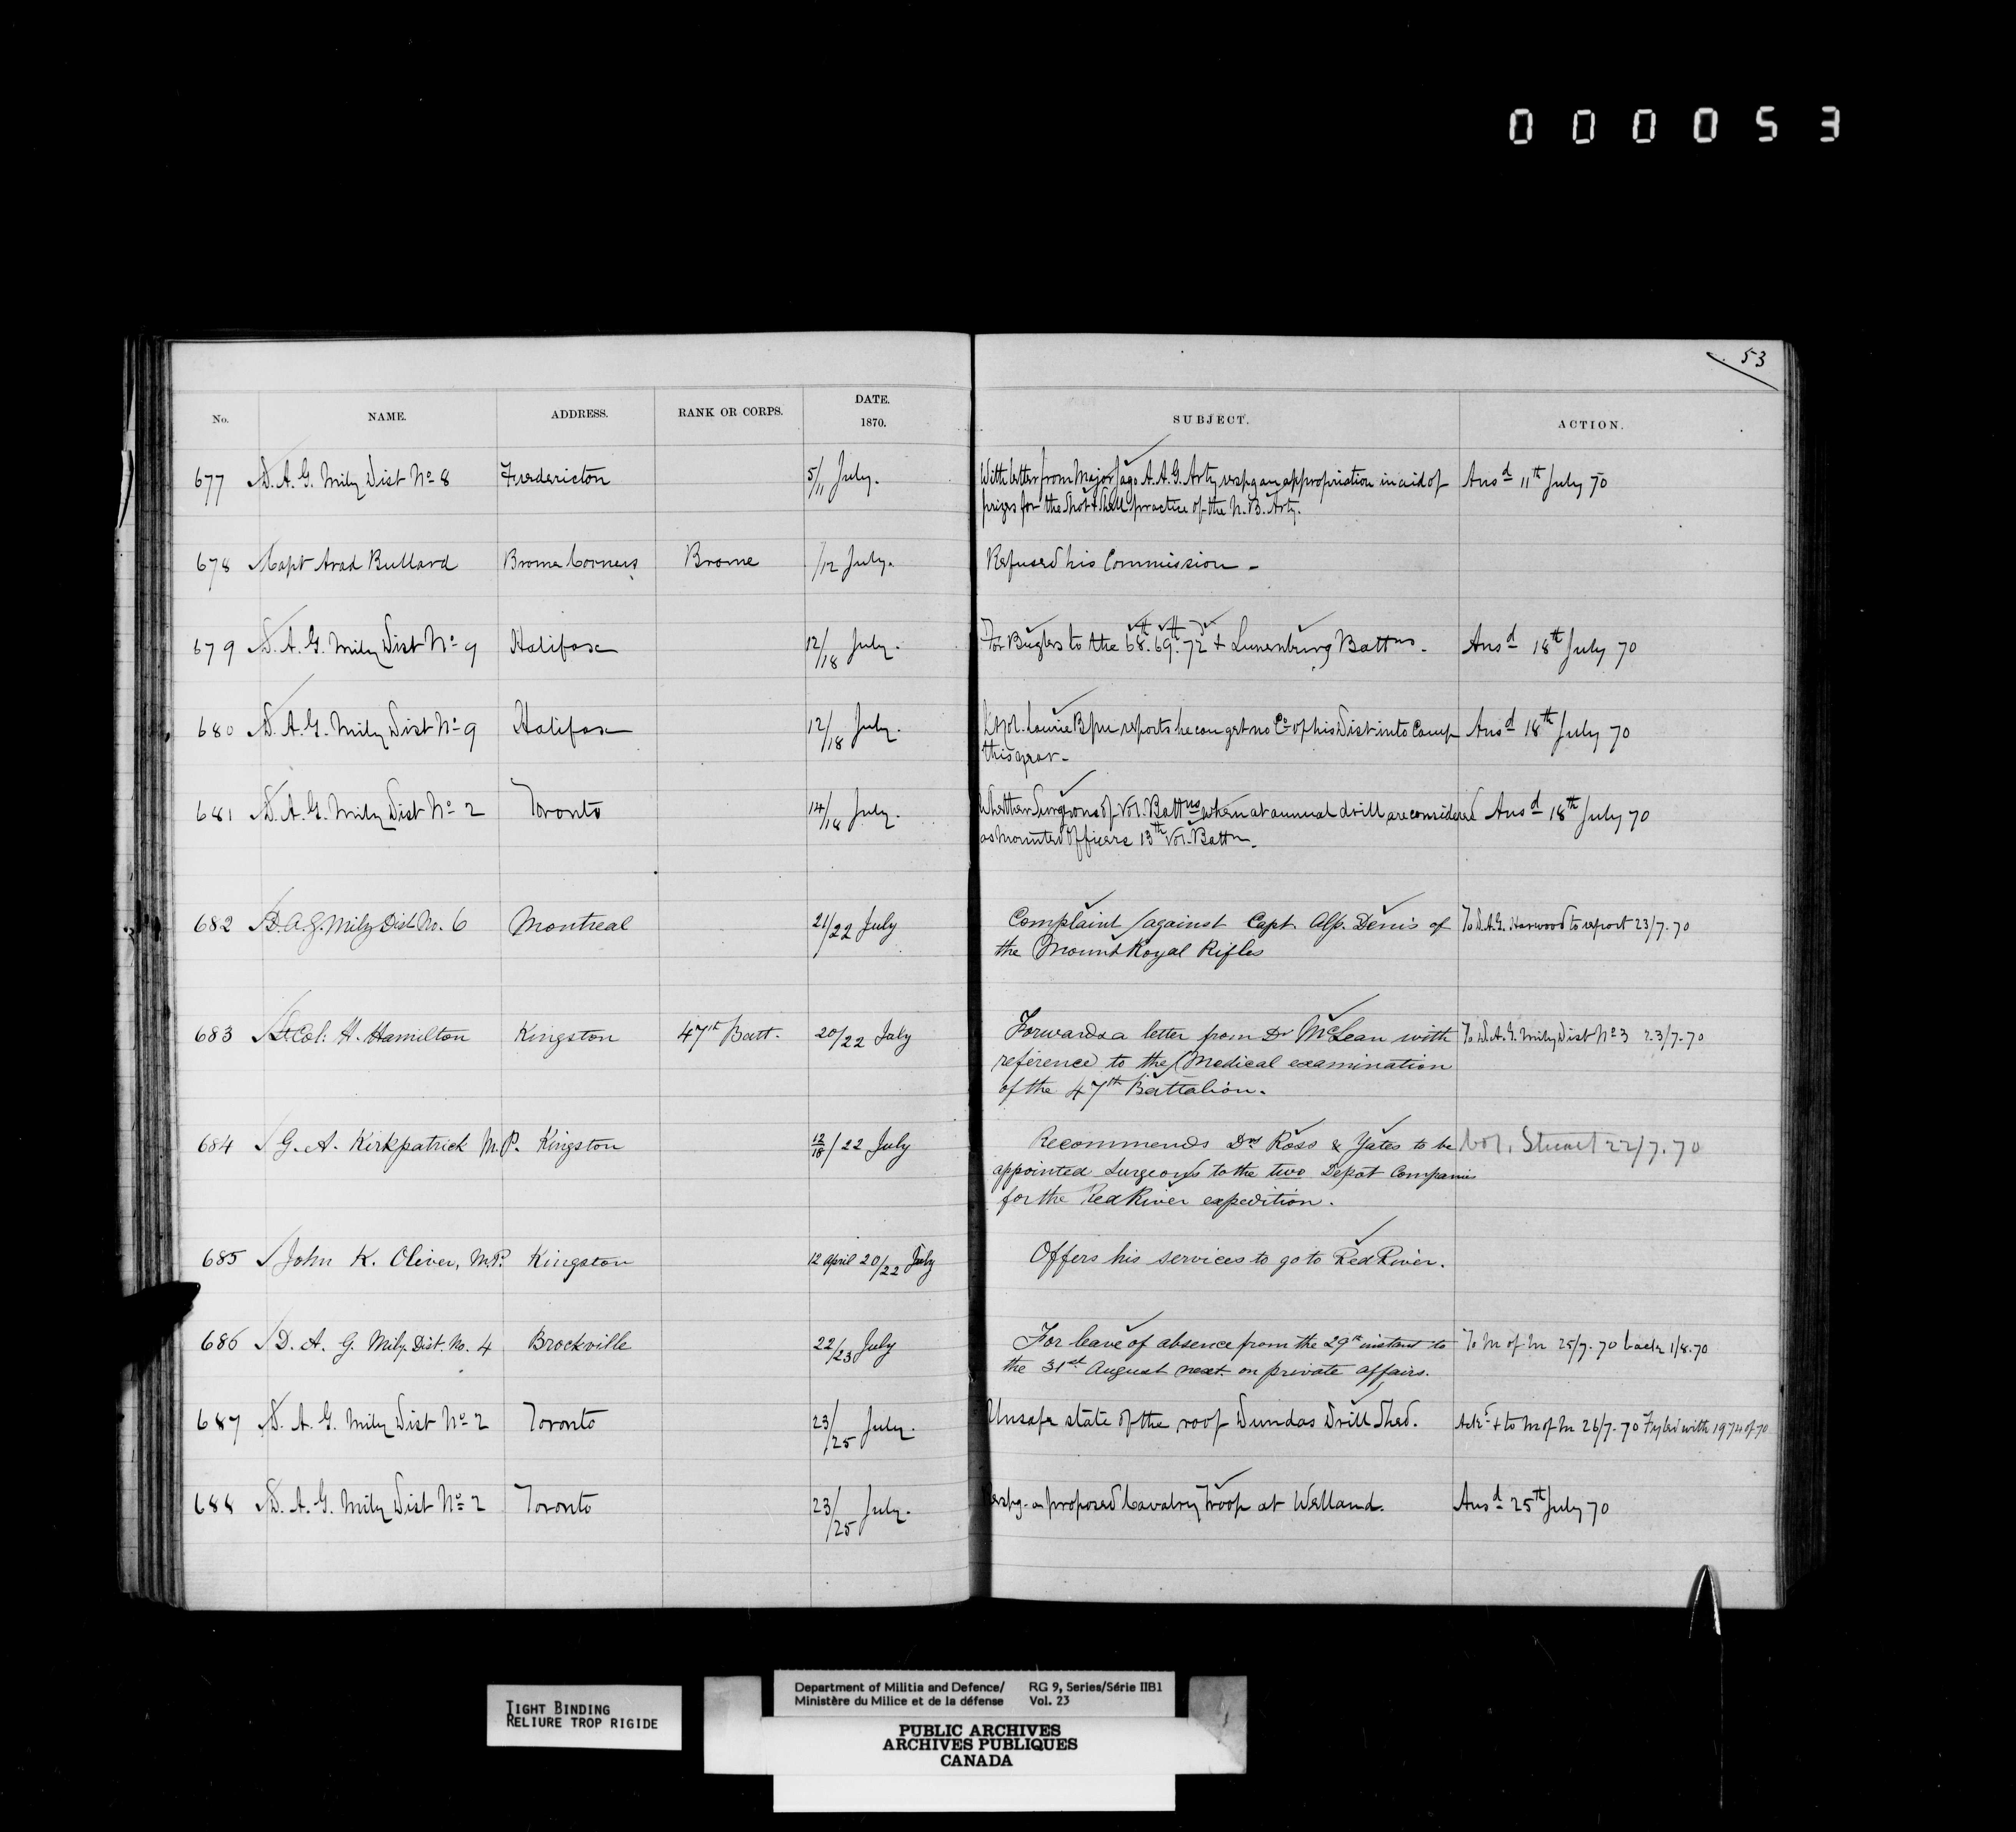 000053
53
No. NAME. ADDRESS. RANK OR CORPS. DATE. 1870. SUBJECT. ACTION.
677 D. A. G. Mily Dist No 8 Fredericton 5/11 July. With letter from Major Jago A. A. G. Arty respg an appropriation in aid of Ansd 11th July 70
prizes for the Shot & Shell practice of the N. B. Arty.
678 Capt Arad Bullard Brome Corners Brome /12 July. Refused his Commission -
679 D. A. G. Mily Dist No 9 Halifax 12/18 July. For Buglers to the 68th. 69th. 72d & Lunenburg Battns. Ansd 18th July 70
680 D. A. G. Mily Dist No 9 Halifax 12/18 July. Lt Col. Laurie reports he can get no Co of his Dist into Camp Ansd 18th July 70
this year -
681 D. A. G. Mily Dist No 2 Toronto 14/18 July. Whether Surgeons of Vol. Battns when at annual drill are considered Ansd 18th July 70
as mounted Officers 13th Vol. Battn.
682 D. A. G. Mily Dist No. 6 Montreal 21/22 July Complaint against Capt. Alp. Denis of To D.A.G. Harwood to report 23/7.70
the Mount Royal Rifles
683 Lt Col: H. Hamilton Kingston 47th Batt. 20/22 July Forwards a letter from Dr McLean with To D.A.G. Mily Dist No 3 23/7.70
reference to the Medical examination
of the 47th Battalion.
684 G. A. Kirkpatrick M.P. Kingston 12/18/22 July Recommends Drs Ross & Yates to be Col. Stuart 22/7.70
appointed Surgeons to the two Depot Companies
for the Red River expedition.
685 John K. Oliver, M.P. Kingston 12 April 20/22 July Offers his services to go to Red River.
686 D. A. G. Mily. Dist. No. 4 Brockville 22/23 July For leave of absence from the 29th instant to To M of M 25/7.70 back 1/8.70
the 31st August next on private affairs.
687 D. A. G. Mily Dist No 2 Toronto 23/25 July. Unsafe state of the roof Dundas Drill Shed. Ackd & to M of M 26/7.70 Fyled with 1974 of 70
688 D. A. G. Mily Dist No 2 Toronto 23/25 July. Respg a proposed Cavalry Troop at Welland. Ansd 25th July 70
TIGHT BINDING
RELIURE TROP RIGIDE
Department of Militia and Defence/ RG 9, Series/Série IIB1
Ministère du Milice et de la défense Vol. 23
PUBLIC ARCHIVES
ARCHIVES PUBLIQUES
CANADA